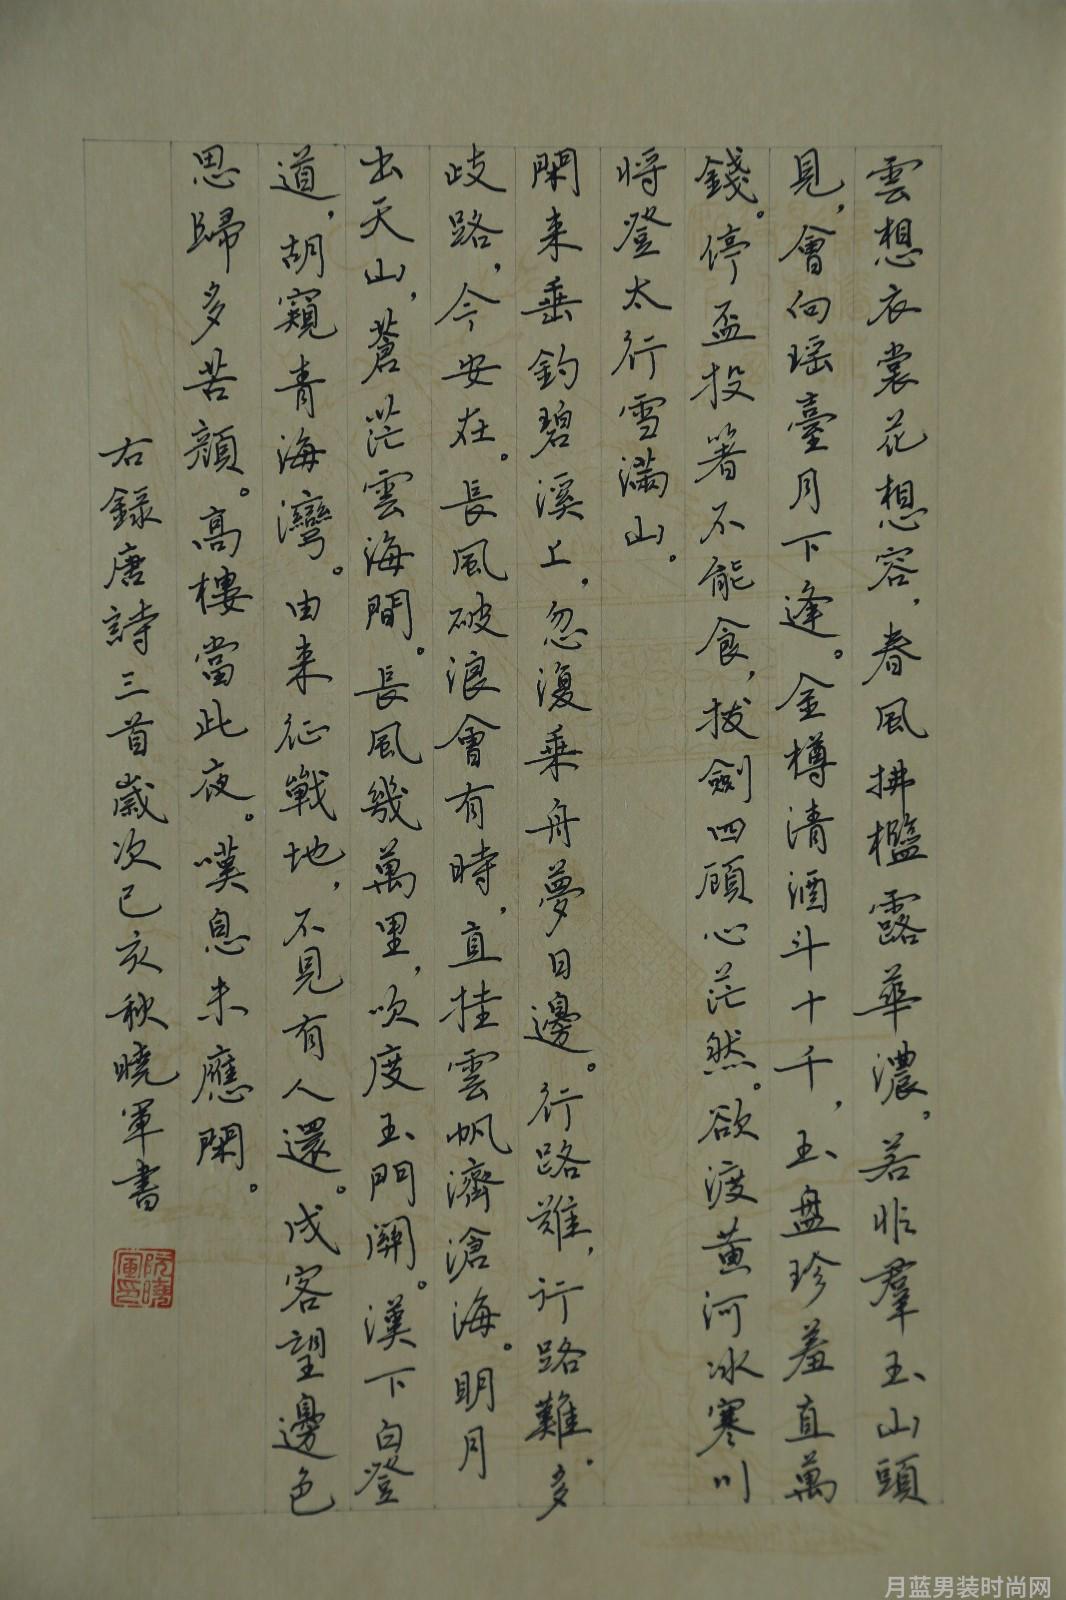 雲想衣裳花想容，春風拂檻露華濃，若非羣玉山頭
見，會向瑶臺月下逢。金樽清酒斗十千，玉盤珍羞直萬
錢。停盃投箸不能食，拔劍四顧心茫然。欲渡黄河冰寒川
将登太行雪滿山。
閑来垂釣碧溪上，忽復乗舟夢日邊。行路難，行路難。多
歧路，今安在。長風破浪會有時，直挂雲帆濟滄海。明月
出天山，蒼茫雲海間。長風幾萬里，吹度玉門關。漢下白登
道，胡窺青海灣。由来征戰地，不見有人還。戍客望邊色
思歸多苦顔。高樓當此夜。嘆息未應閑。
右録唐詩三首歲次己亥秋曉軍書
阮曉軍印
月蓝男装时尚网